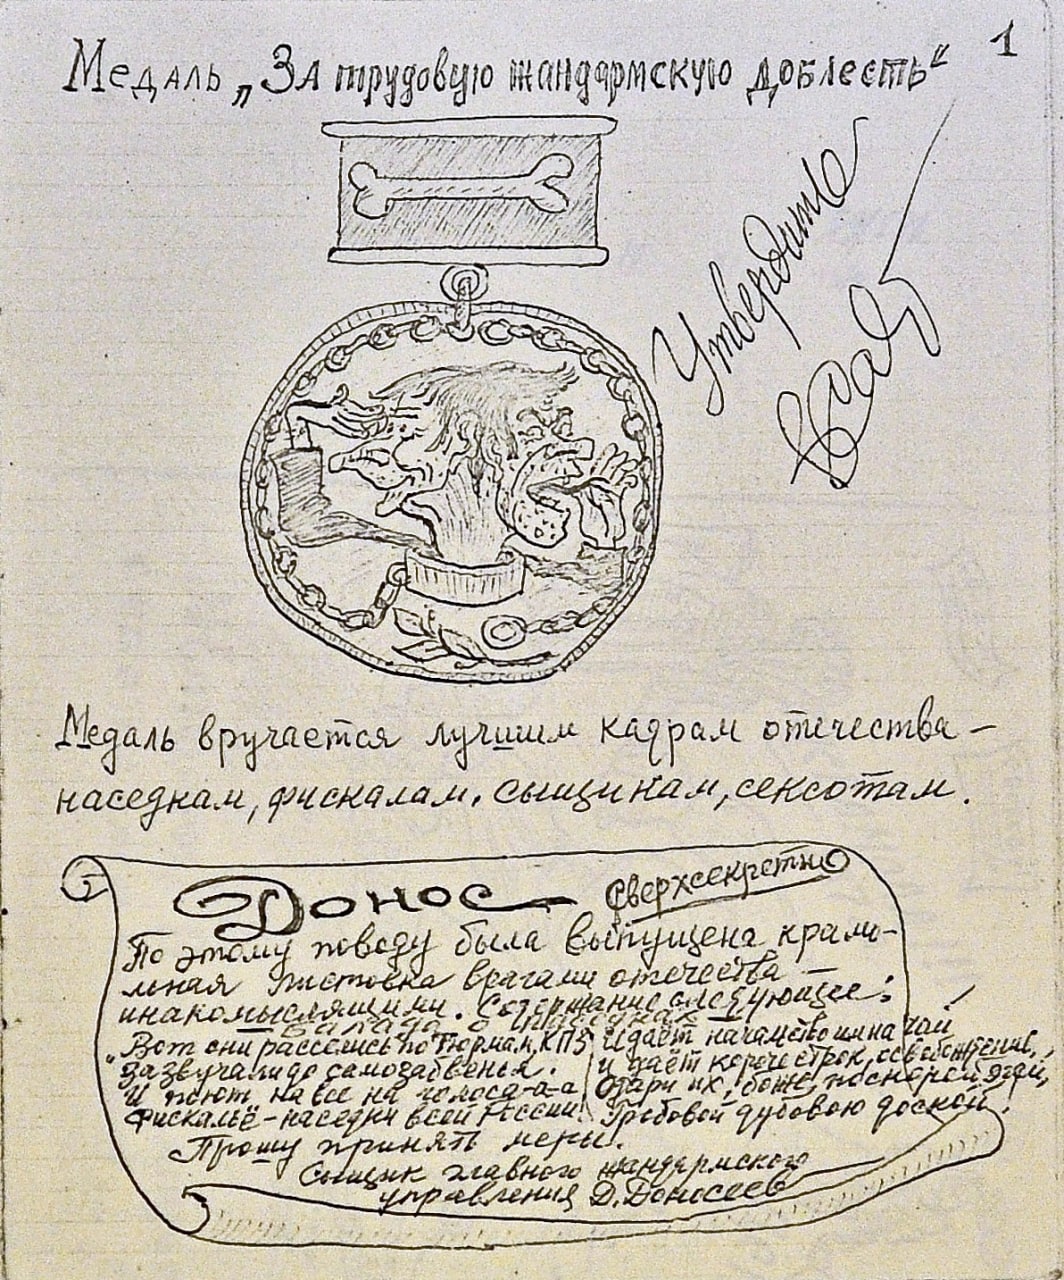 1
Медаль „За трудовую жандармскую доблесть“
Утвердить
Медаль вручается лучшим кадрам отечества –
наседкам, фискалам, сыщикам, сексотам.
Донос –
Сверхсекретно
По этому поводу была выпущена крамо-
льная листовка врагами отечества –
инакомыслящими. Содержание следующее:
Баллада о
„Вот они расселись по тюрмам, КПЗ
зазвучали до самозабвенья.
И поют на все на голоса-а-а
Фискальё – наседки всей России!
И даёт начальство им на чай
и даёт короче строк, освобождение,
Одари их, боже, поскорей
Гробовой дубовою доской!
Прошу принять меры.
Сыщик главного жандармского
управления Д. Доносеев